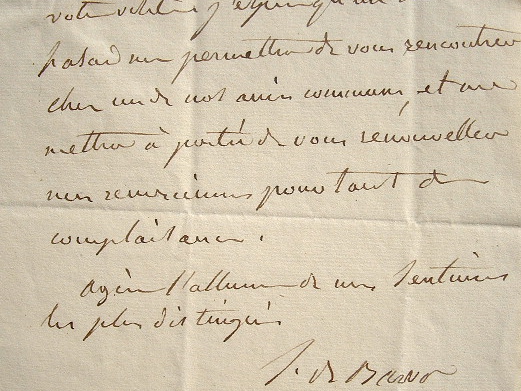 votre j'espère qu'un
hasard me permettra de vous rencontrer
chez un de nos amis communs, et me
mettra à portée de vous renouveller
mes remerciemens pour tant de
complaisance.
agréez l'assurance de mes sentimens
les plus distingués
J. de